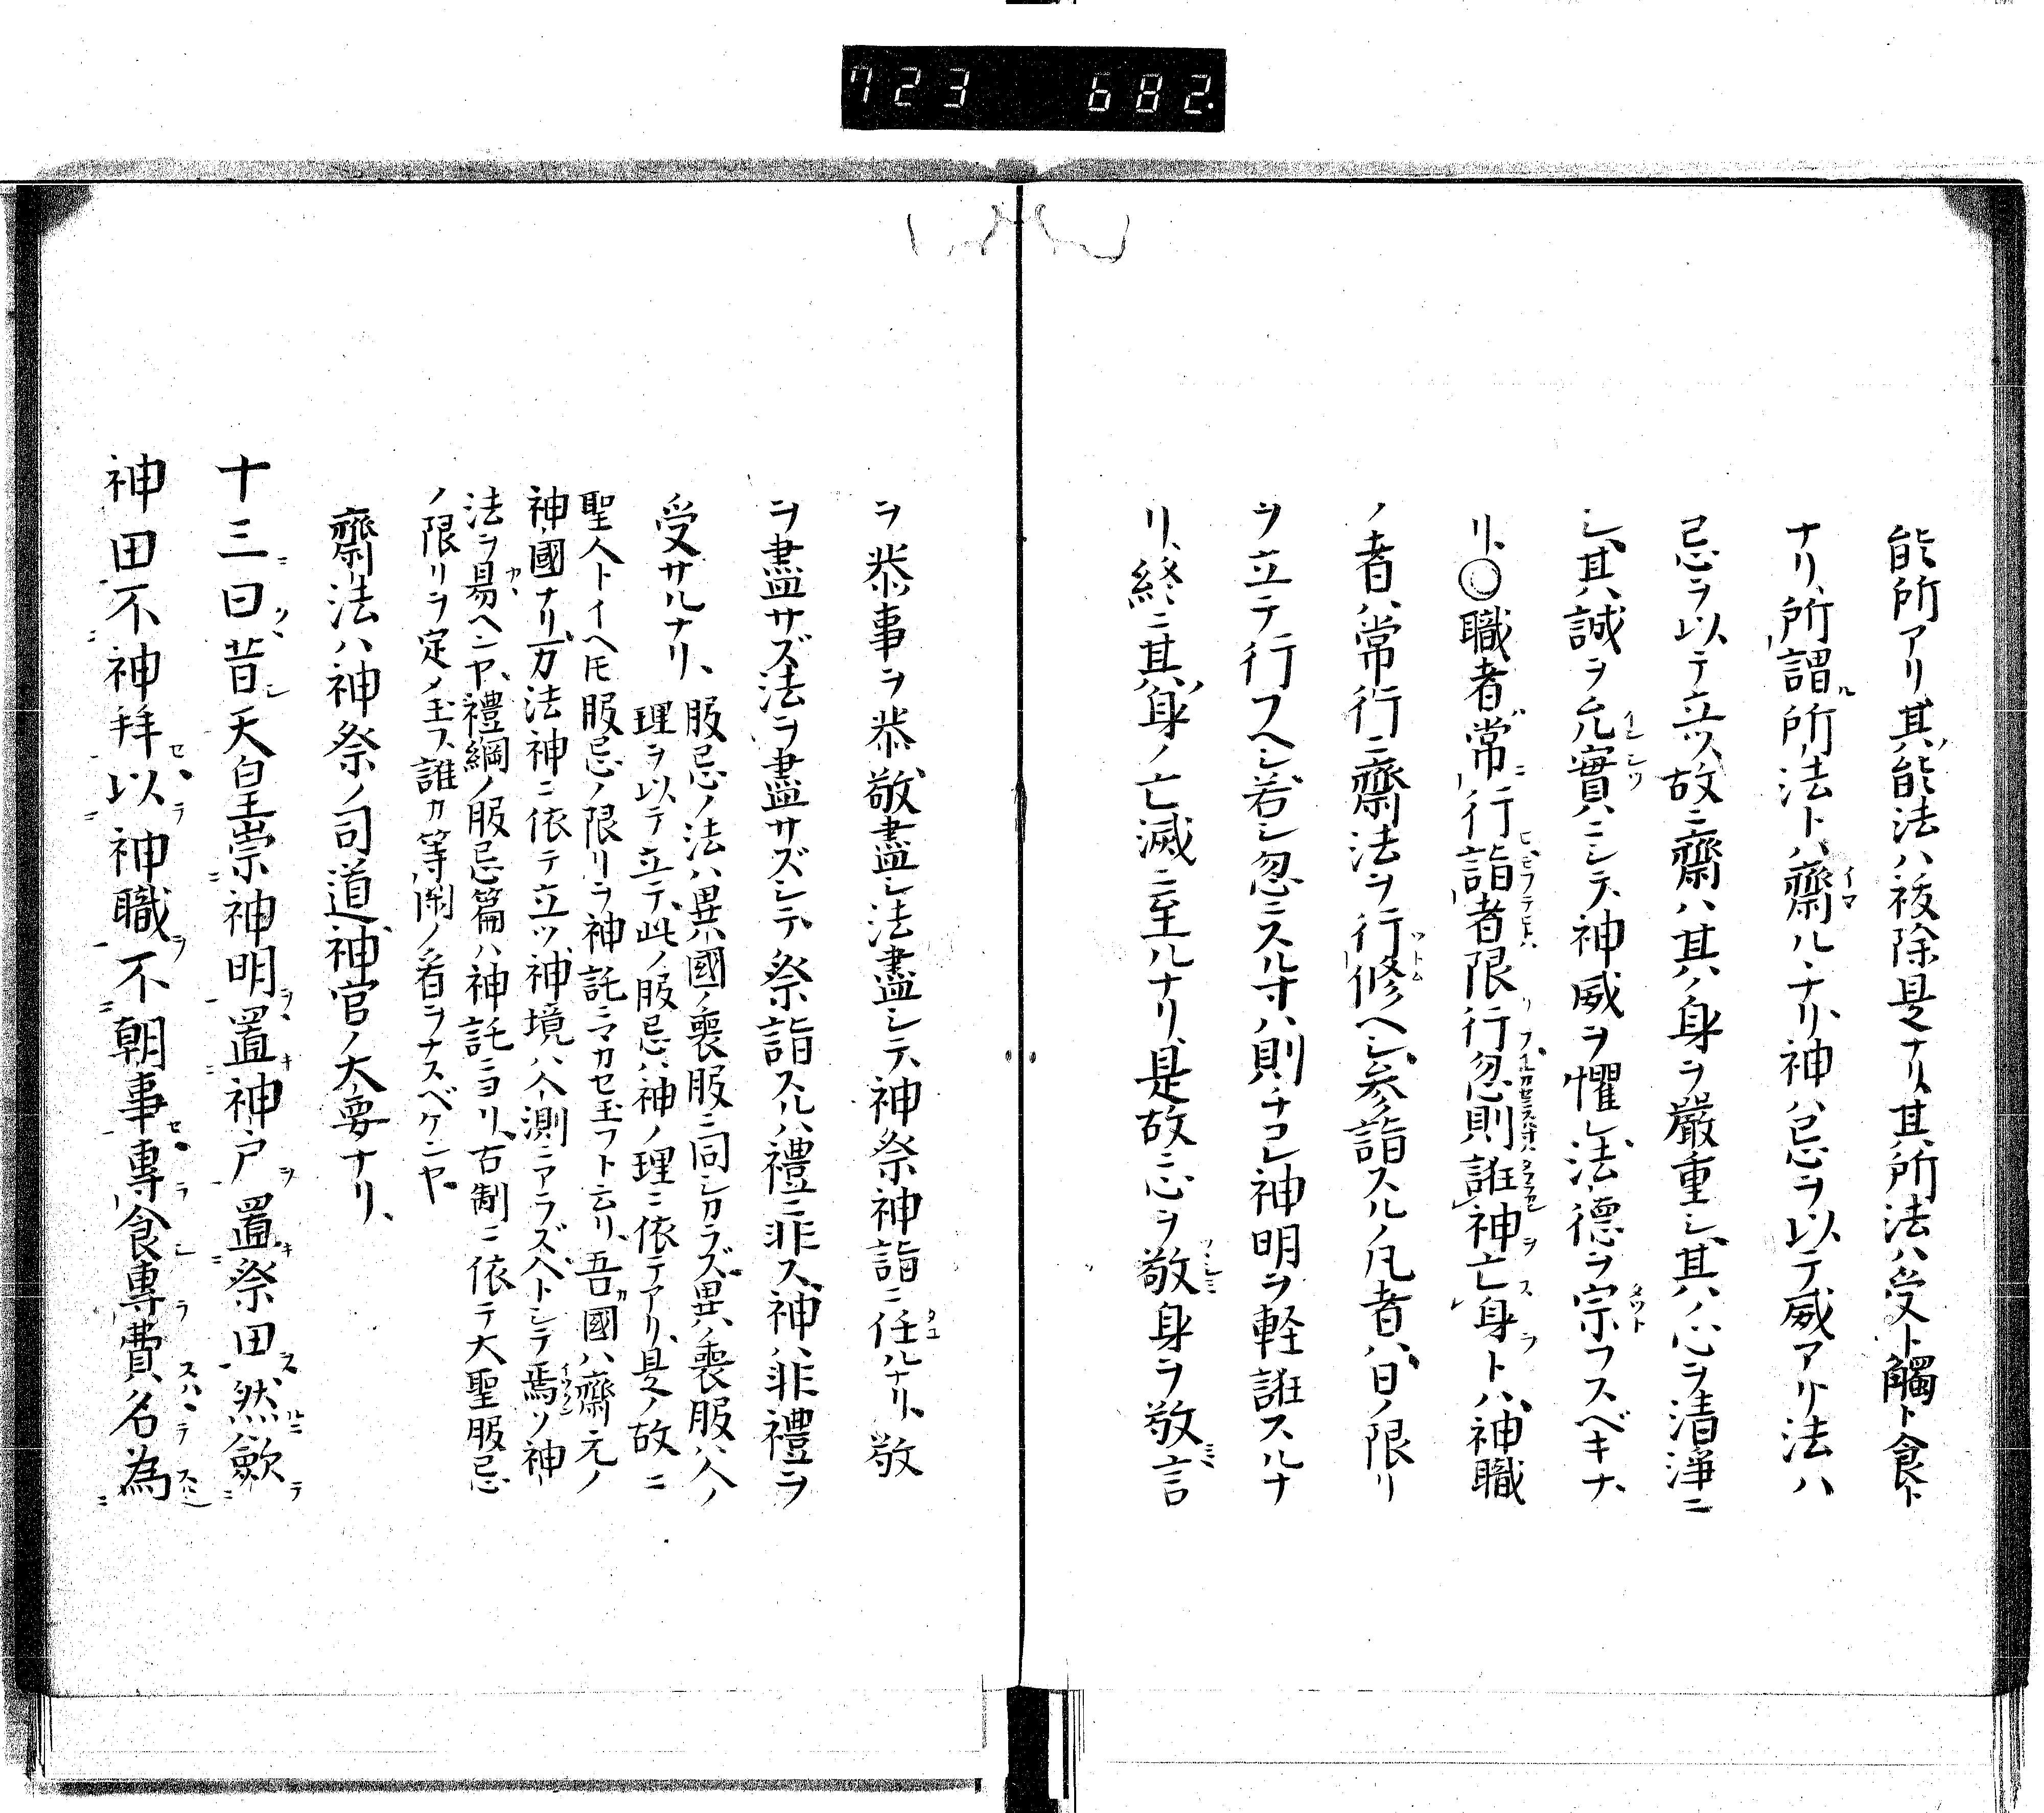 723 682.
能所アリ其ノ能法ハ祓除是ナリ、其所法ハ受ト觸ト食ト
ナリ、所謂ル所法トハ齋ルヽナリ、神ハ忌ヲ以テ威アリ法ハ
忌ヲ以テ立ツ、故ニ齋ハ其ノ身ヲ嚴重ニシ、其ノ心ヲ清淨ニ
シ、其ノ誠ヲ允實ニシテ、神威ヲ懼レ、法德ヲ宗フスベキナ
リ、○職者常ニ行詣者限行忽則誑神亡身トハ、神職
ノ者ハ常行ニ齋法ヲ行修ヘシ、參詣スルノ凡者ハ、日ノ限リ
ヲ立テ行フヘシ、若シ忽ニスル寸ハ、則チコレ神明ヲ軽誑スルナ
リ、終ニ其ノ身ノ亡滅ニ至ルナリ、是故ニ心ヲ敬身ヲ敬言
ヲ恭事ヲ恭敬盡シ法盡シテ、神祭神詣ニ任ルナリ、敬
ヲ盡サズ法ヲ盡サズシテ、祭詣スルハ禮ニ非ス、神ハ非禮ヲ
受サルナリ、服忌ノ法ハ異國ノ喪服ニ同シカラズ、異ノ喪服ハ人ノ
理ヲ以テ立テ、此ノ服忌ハ神ノ理ニ依テアリ、是ノ故ニ
聖人トイヘ𪜈服忌ノ限リヲ神託ニマカセ玉フト云リ、吾カ國ハ齋元ノ
神國ナリ、万法神ニ依テ立ツ、神境ハ人測ニアラズ、人トシテ焉ソ神ノ
法ヲ易ヘンヤ、禮綱ノ服忌篇ハ神託ニヨリ、古制ニ依テ大聖服忌
ノ限リヲ定メ玉フ、誰カ等閑ノ看ヲナスベケンヤ。
齋法ハ神祭ノ司道、神官ノ大要ナリ、
十三曰昔天皇崇神明置神戸置祭田然歟
神田不神拜以神職不朝事專食專費名為